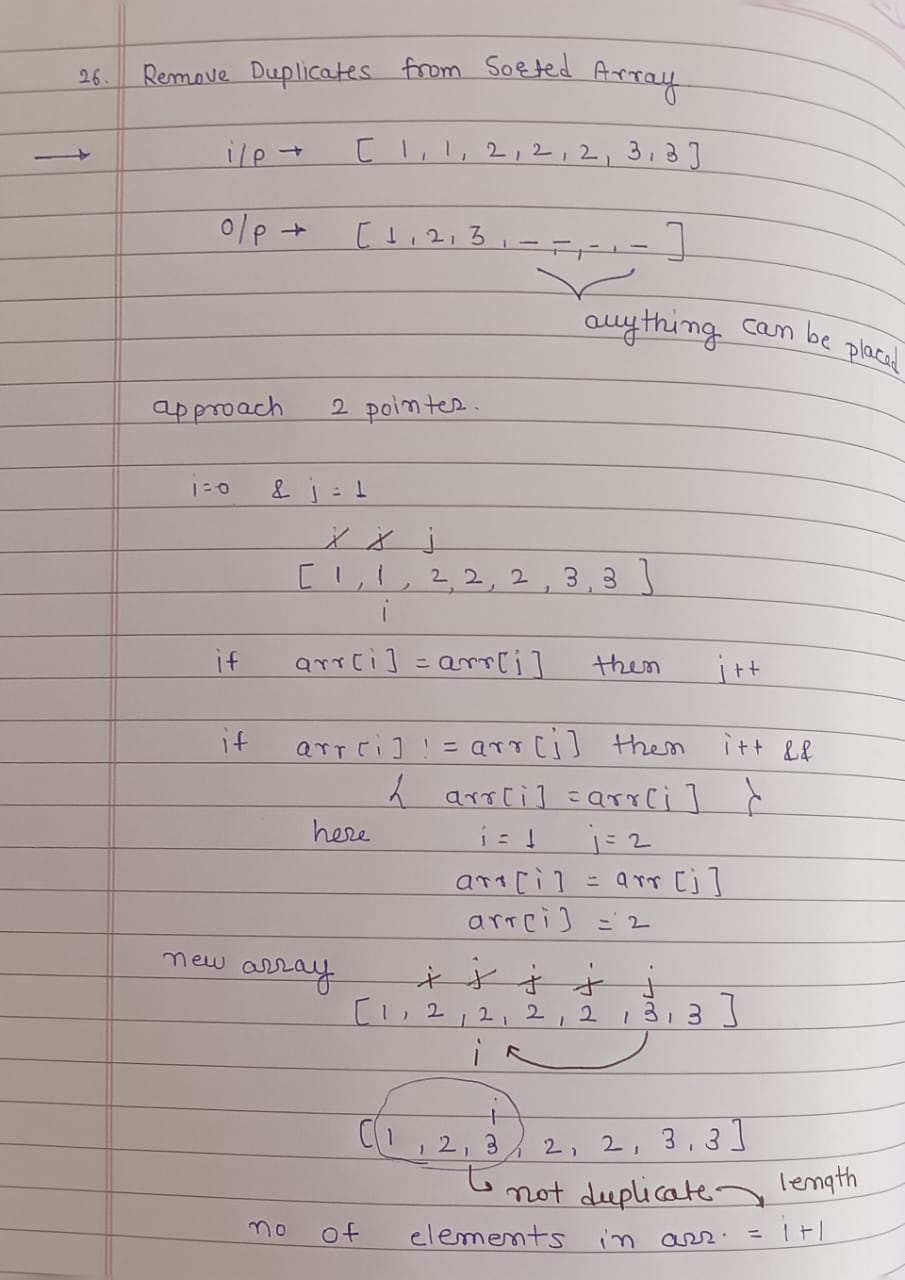 26. Remove Duplicates from Sorted Array
i/p → [ 1, 1, 2, 2, 2, 3, 3 ]
o/p → [ 1, 2, 3, -, -, -, - ]
anything can be placed
approach 2 pointer.
i=0 & j=1
i j j
[ 1, 1, 2, 2, 2, 3, 3 ]
i
if arr[i] = arr[j] then j++
if arr[i] != arr[j] then i++ &&
{ arr[i] = arr[j] }
here i = 1 j = 2
arr[i] = arr[j]
arr[i] = 2
new array
i j j j j
[ 1, 2, 2, 2, 2, 3, 3 ]
i
i
[ 1, 2, 3, 2, 2, 3, 3 ]
not duplicate → length
no of elements in arr. = i+1